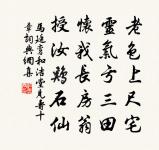 老色上尺宅
靈氣兮三田
懷我長房翁
授汝石仙
馬廷鸞和洁堂見壽十
章詞典網集